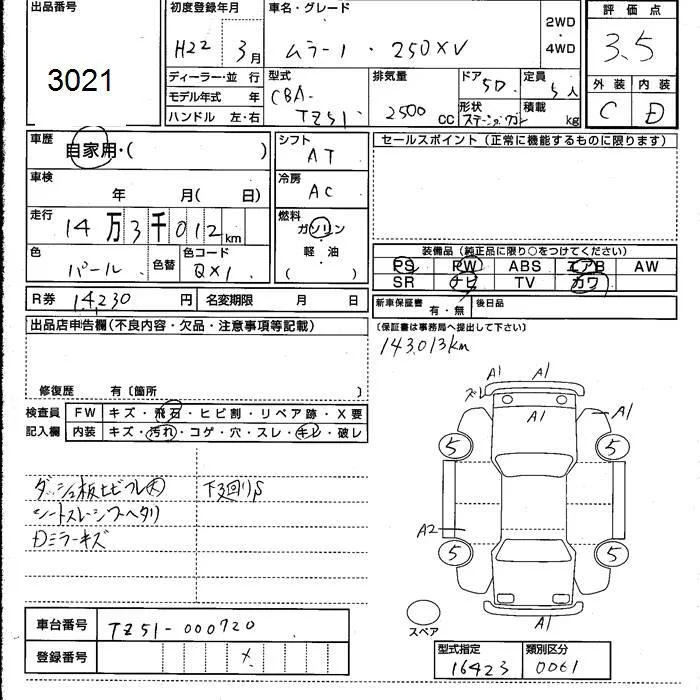 出品番号 3021
初度登録年月 H22年 3月
車名・グレード ムラーノ・250XV 2WD・4WD
評価点 3.5
外装 C 内装 D
ディーラー・並行
モデル年式 年
ハンドル 左・右
型式 CBA-TZ51
排気量 2500 CC
ドア 5D 形状 ステーションワゴン
定員 5人 積載 kg
車歴 自家用・( )
車検 年 月( 日)
走行 14万3千012km
色 パール 色替 色コード QX1
シフト AT
冷房 AC
燃料 ガソリン・軽油・( )
セールスポイント(正常に機能するものに限ります)
装備品(純正品に限り○をつけてください)
PS PW ABS エアB AW
SR ナビ TV カワ
R券 14,230円 名変期限 月 日
新車保証書 有・無 後日品
(保証書は事務局へ提出して下さい)
143,013km
出品店申告欄(不良内容・欠品・注意事項等記載)
修復歴 有〔箇所 〕
検査員記入欄
FW キズ・飛石・ヒビ割・リペア跡・X要
内装 キズ・汚れ・コゲ・穴・スレ・キレ・破レ
ダッシュ板ヒビワレ大 下廻りS
シートスレシワヘタリ
Dミラーキズ
A1 A1
ズレ A1 A1
5 5
A2
5 5
A1
スペア
車台番号 TZ51-000720
登録番号
型式指定 16423 類別区分 0061